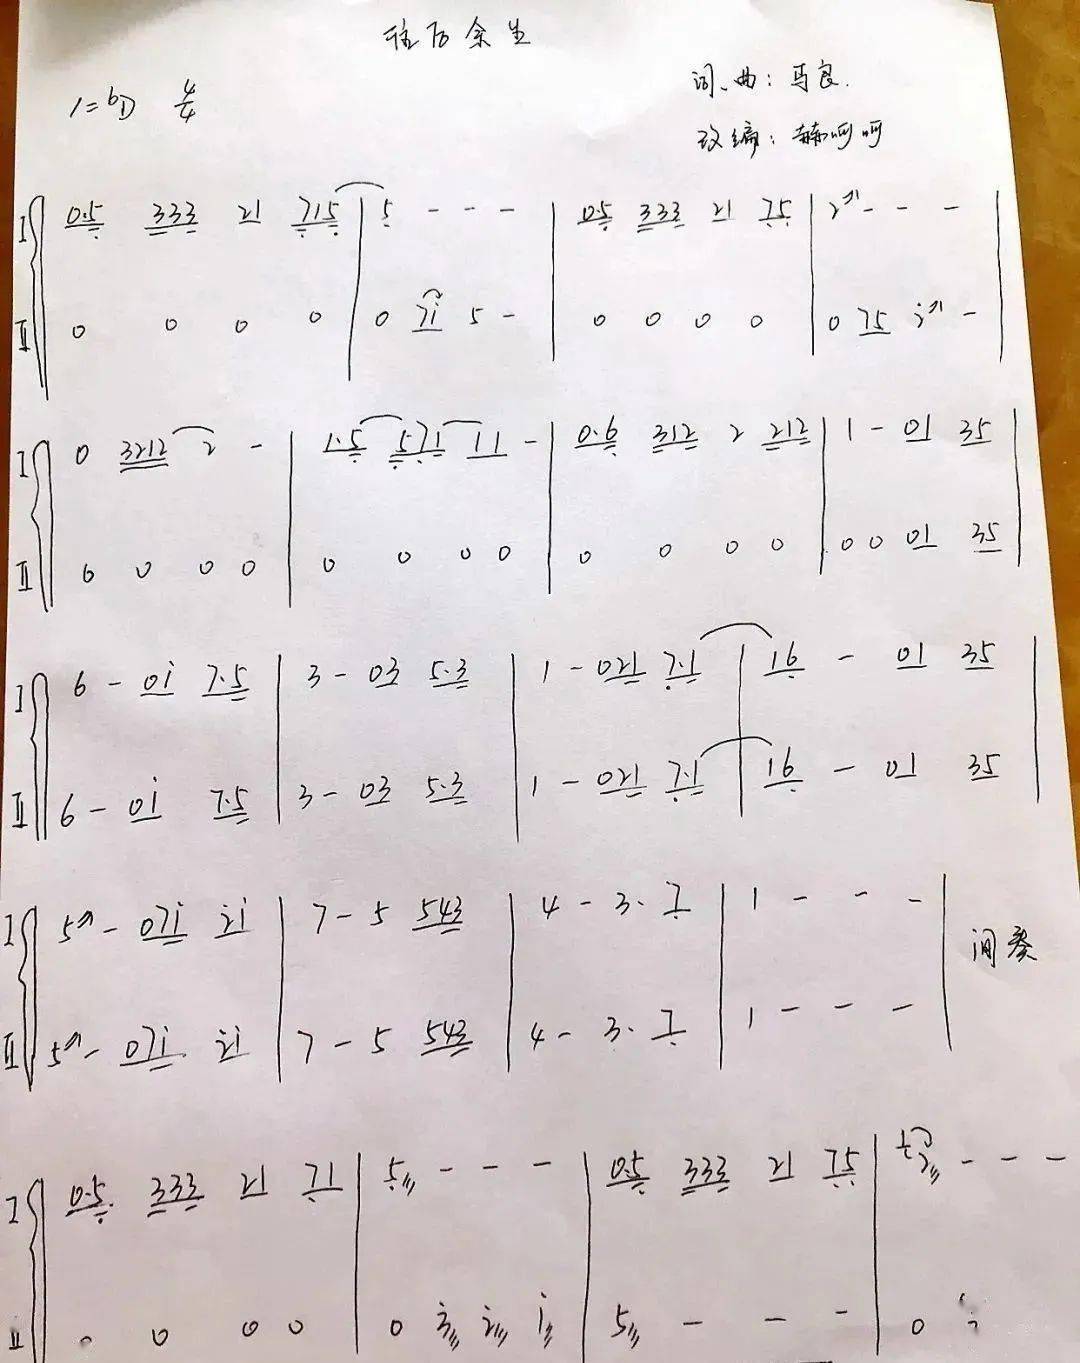 往后余生
1=bD 4/4
词、曲：马良.
改编：赫呵呵
I 0.5 333 21 715 | 5 - - - | 0.5 333 21 75 | 2 - - - |
II 0 0 0 0 | 0 7i 5 - | 0 0 0 0 | 0 75 i - |
I 0 3212 2 - | 1.5 571 11 - | 0.6 312 2 212 | 1 - 01 35 |
II 0 0 0 0 | 0 0 0 0 | 0 0 0 0 | 0 0 01 35 |
I 6 - 0i 7.5 | 3 - 03 5.3 | 1 - 021 7.1 | 16 - 01 35 |
II 6 - 0i 7.5 | 3 - 03 5.3 | 1 - 021 7.1 | 16 - 01 35 |
I 5 - 07i 2i | 7 - 5 543 | 4 - 3. 7 | 1 - - - | 间奏
II 5 - 07i 2i | 7 - 5 543 | 4 - 3. 7 | 1 - - - |
I 0.5 333 21 71 | 5 - - - | 0.5 333 21 75 | 2 - - -
II 0 0 0 0 | 0 3 2 i | 5 - - - | 0 i